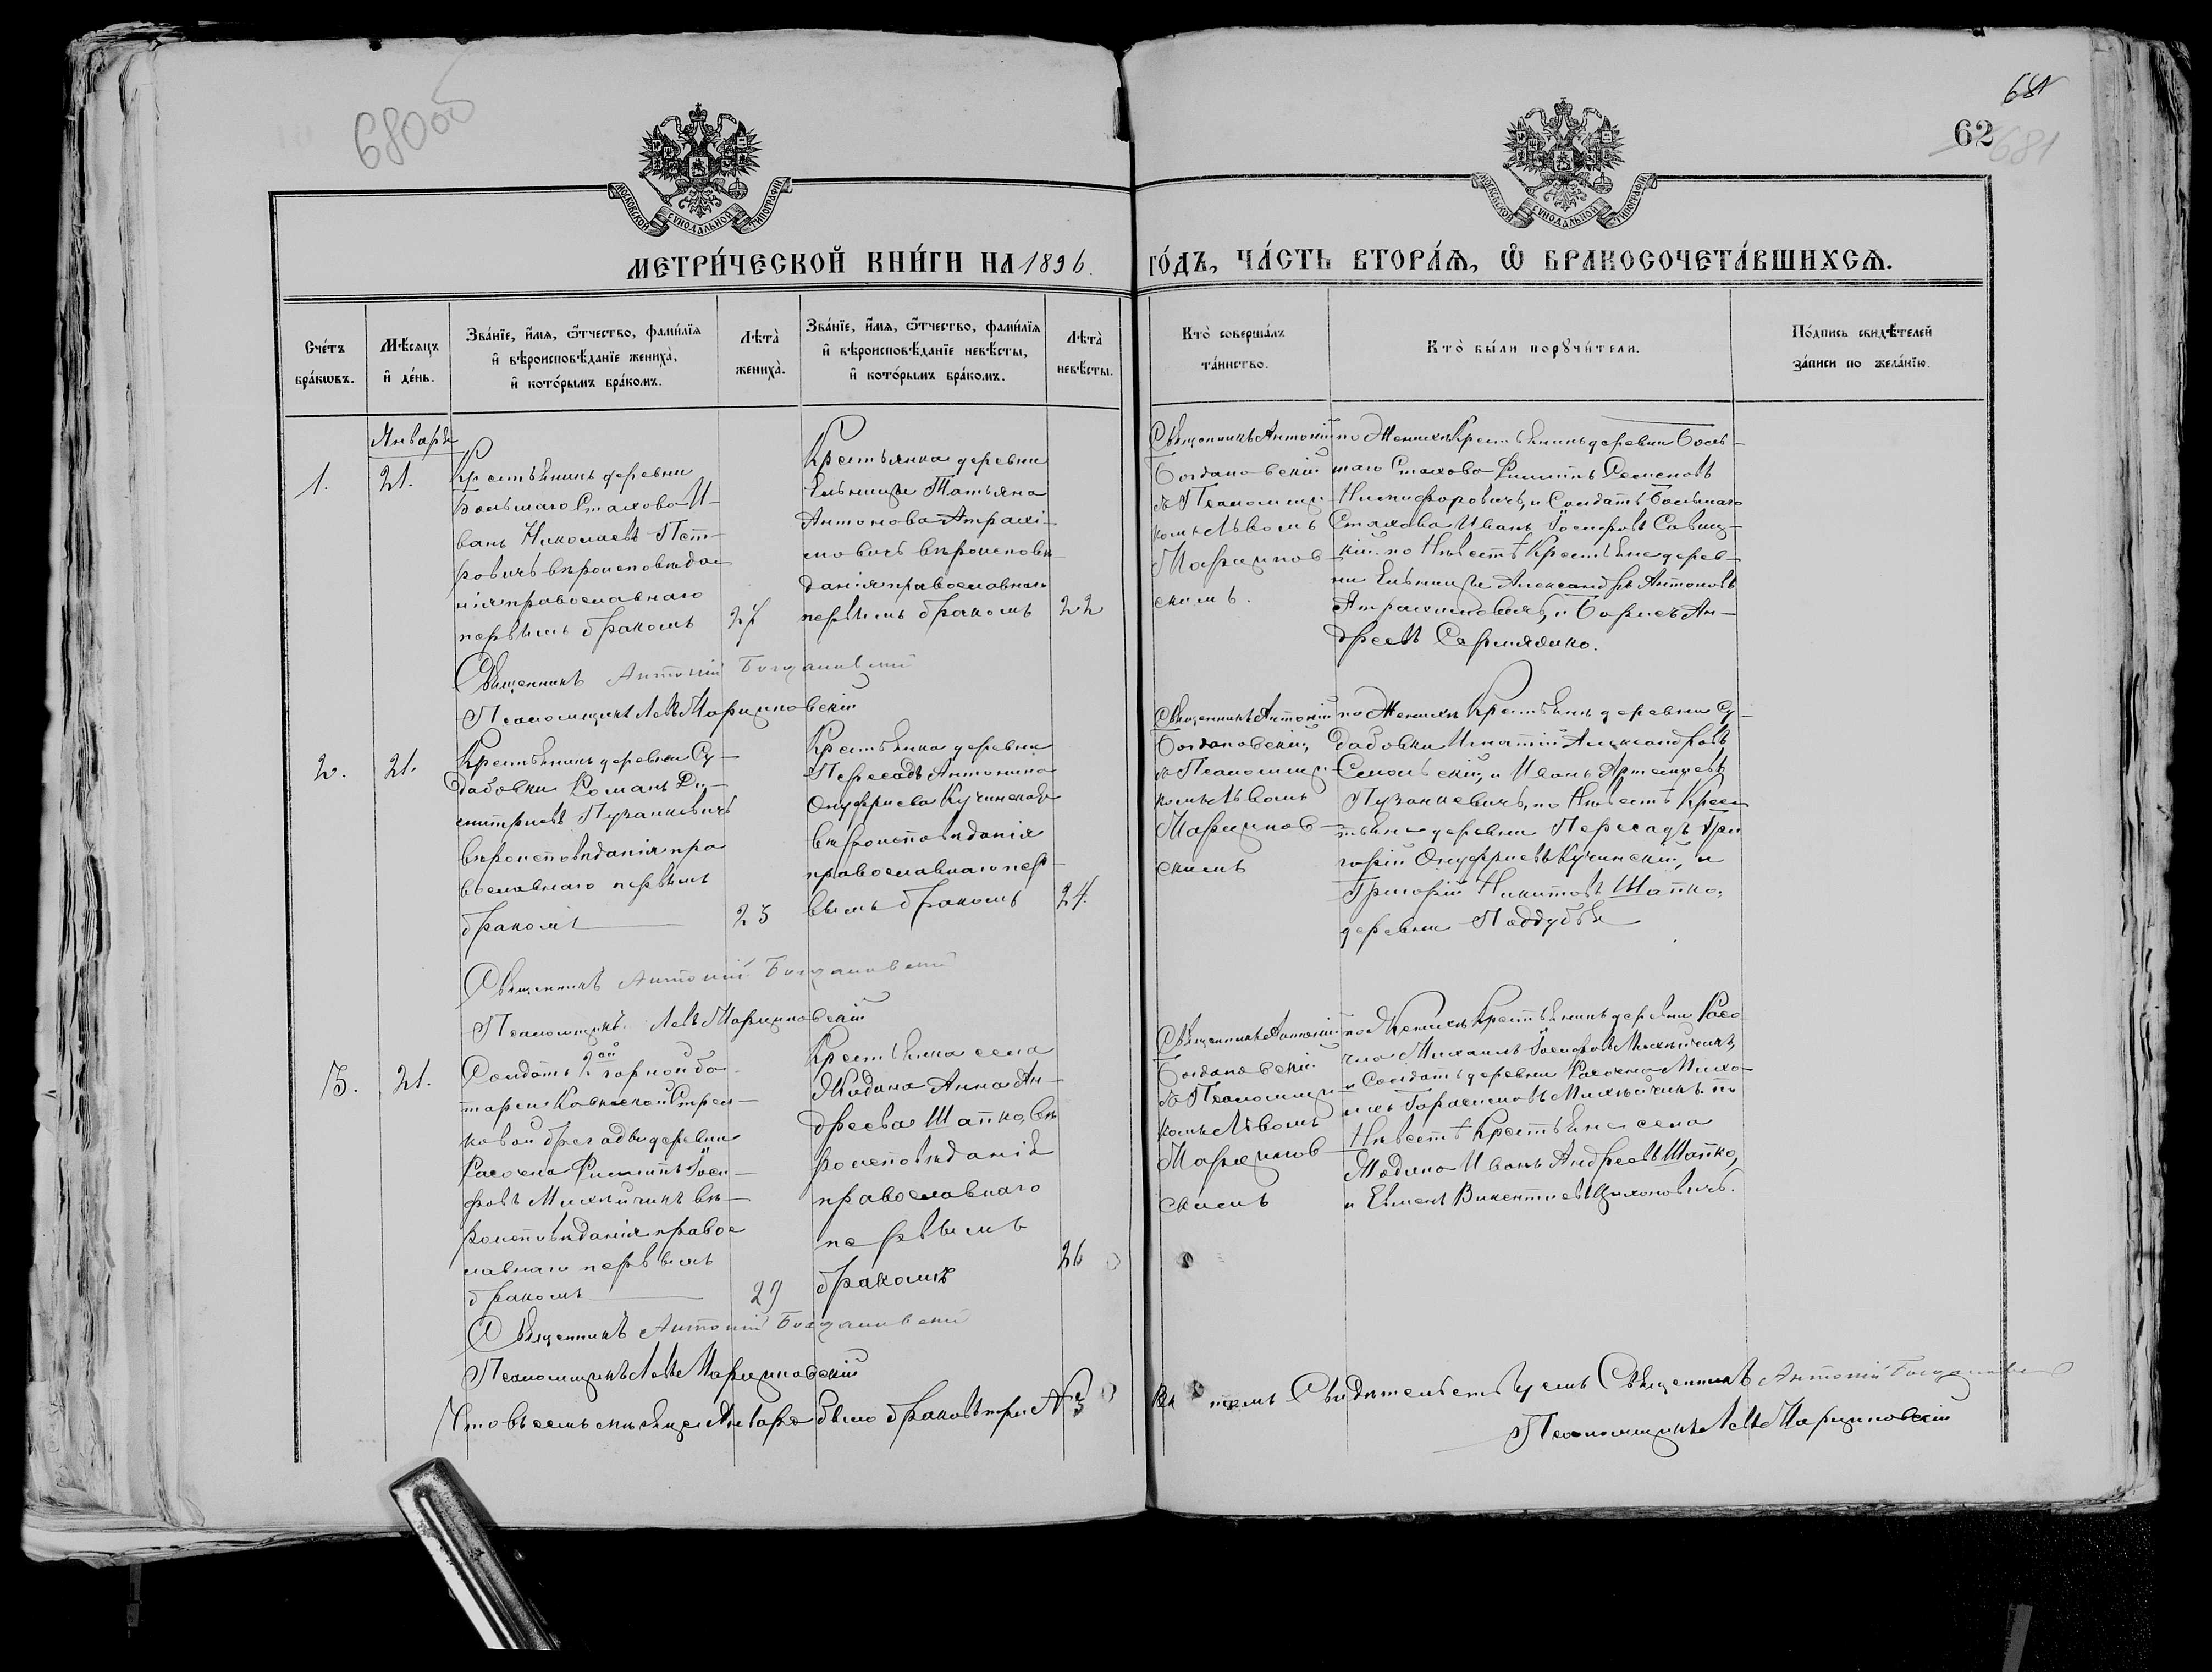 680об
681
62
681
МОСКОВСКОЙ СѴНОДАЛЬНОЙ ТИПОГРАФІИ
МОСКОВСКОЙ СѴНОДАЛЬНОЙ ТИПОГРАФІИ
МЕТРИ́ЧЕСКОЙ КНИ́ГИ НА 1896.
ГО́ДЪ, ЧА́СТЬ ВТОРА́Ѧ, Ѽ БРАКОСОЧЕТА́ВШИХСѦ.
Сче́тъ бра́кωвъ.
Мѣ́сяцъ и҆ де́нь.
Зва́нїе, и҆́мя, ѻ҆́тчество, фами́лїя и҆ вѣроисповѣ́данїе жениха̀, и҆ кото́рымъ бра́комъ.
Лѣта̀ жениха̀.
Зва́нїе, и҆́мя, ѻ҆́тчество, фами́лїя и҆ вѣроисповѣ́данїе невѣ́сты, и҆ кото́рымъ бра́комъ.
Лѣта̀ невѣ́сты.
Кто̀ соверша́лъ та́инство.
Кто̀ бы́ли порꙋчи́тели.
По́дпись свидѣ́телей за́писи по жела́нїю.
Января
1.
21.
Крестьянинъ деревни
Большаго Стахова И-
ванъ Николаевъ Пет-
ровичъ вѣроисповѣда
нія православнаго
первымъ бракомъ
27
Крестьянка деревни
Ельницы Татьяна
Антонова Атрахи-
мовичъ вѣроисповѣ-
данія православнаго
первымъ бракомъ
22
Священникъ Антоній
Богдановскій
съ Псаломщи-
комъ Львомъ
Марцинов-
скимъ.
по Женихѣ Крестьянинъ деревни Боль-
шаго Стахова Филиппъ Семеновъ
Никифоровичъ, и Солдатъ Большаго
Стахова Иванъ Іосифовъ Савиц-
кій. по Невѣстѣ Крестьяне дерев-
ни Ельницы Александръ Антоновъ
Атрахимовичъ, и Борисъ Ан-
дреевъ Сермяжко.
Священникъ Антоній Богдановскій
Псаломщикъ Левъ Марциновскій
2.
21.
Крестьянинъ деревни Су-
дабовки Романъ Ди-
митріевъ Пузанкевичъ
вѣроисповѣданія пра
вославнаго первымъ
бракомъ
23
Крестьянка деревни
Пересадъ Антонина
Онуфріева Кучинская
вѣроисповѣданія
православнаго пер-
вымъ бракомъ
24.
Священникъ Антоній
Богдановскій,
съ Псаломщи-
комъ Львомъ
Марцинов-
скимъ
по Женихѣ Крестьянинъ деревни Су-
дабовки Игнатій Александровъ
Смольскій, и Иванъ Артемьевъ
Пузанкевичъ, по Невѣстѣ Крес
тьяне деревни Пересадъ Гри
горій Онуфріевъ Кучинскій, и
Григорій Никитовъ Шапко,
деревни Поддубья
Священникъ Антоній Богдановскій
Псаломщикъ Левъ Марциновскій
3.
21.
Солдатъ 2ой горной ба-
тареи Кавказской Стрел-
ковой бригады деревни
Рассохна Филиппъ Іоси-
фовъ Михнѣйчикъ вѣ-
роисповѣданія правос
лавнаго первымъ
бракомъ
29
Крестьянка села
Жодина Анна Ан-
дреева Шапко, вѣ
роисповѣданія
православнаго
первымъ
бракомъ
26
Священникъ Антоній
Богдановскій
съ Псаломщи-
комъ Львомъ
Марцинов-
скимъ
по Женихѣ Крестьянинъ деревни Рассо
хна Михаилъ Іосифовъ Михнѣйчикъ,
и Солдатъ деревни Рассохна Миха-
илъ Герасимовъ Михнѣйчикъ по
Невѣстѣ Крестьяне села
Жодина Иванъ Андреевъ Шапко,
и Викентіевъ
Священникъ Антоній Богдановскій
Псаломщикъ Левъ Марциновскій
Что въ семъ мѣсяцѣ Январѣ было браковъ три № 3
въ томъ Свидѣтельствуемъ Священникъ Антоній Богдановскій
Псаломщикъ Левъ Марциновскій